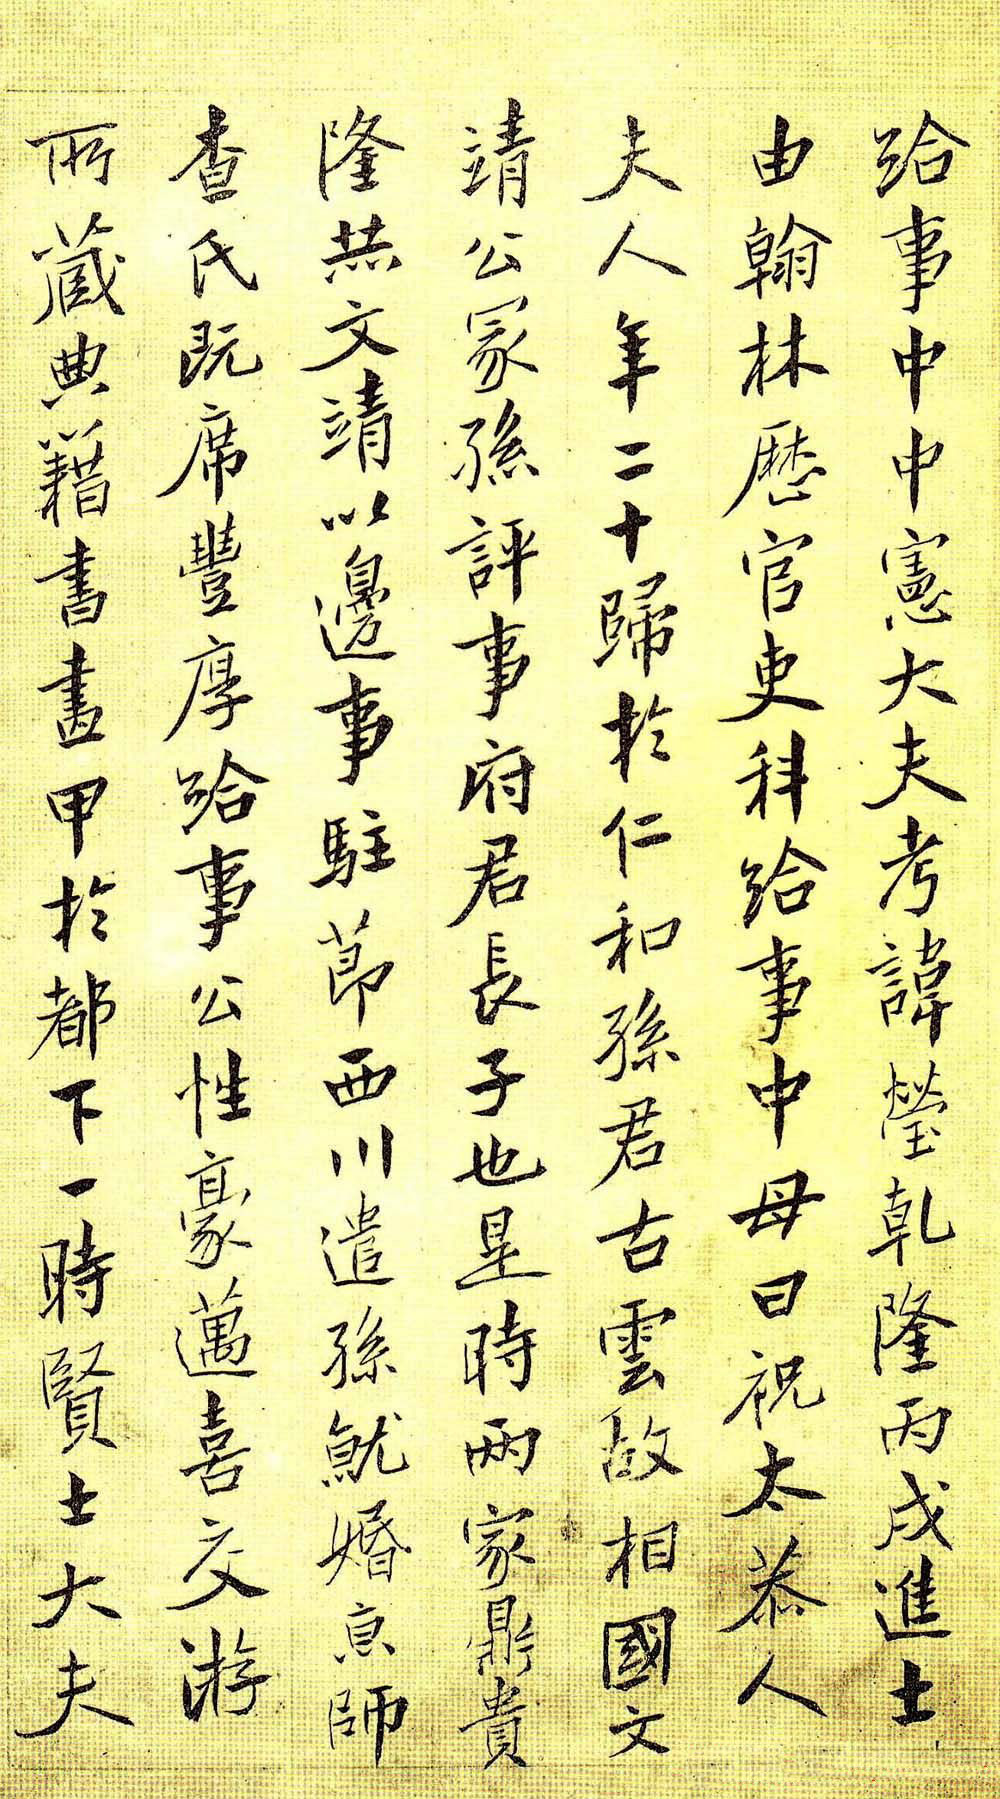 給事中中憲大夫考諱瑩乾隆丙戌進士
由翰林歷官吏科給事中母曰祝太恭人
夫人年二十歸於仁和孫君古雲故相國文
靖公冢孫評事府君長子也是時兩家鼎貴
隆赫文靖以邊事駐節西川遣孫就婚京師
查氏既席豐厚給事公性豪邁喜交游
所藏典籍書畫甲於都下一時賢士大夫